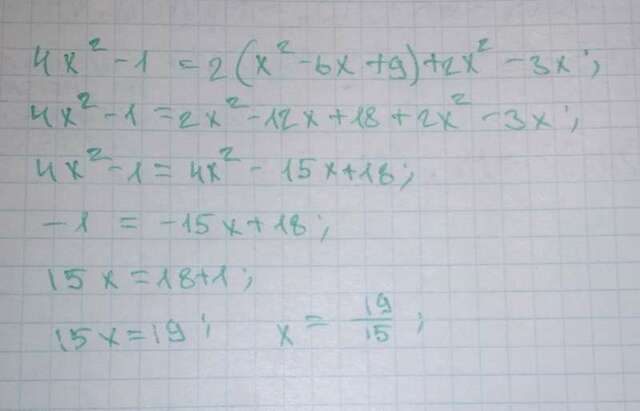 4x² - 1 = 2(x² - 6x + 9) + 2x² - 3x;
4x² - 1 = 2x² - 12x + 18 + 2x² - 3x;
4x² - 1 = 4x² - 15x + 18;
-1 = -15x + 18;
15x = 18 + 1;
15x = 19; x = 19/15;